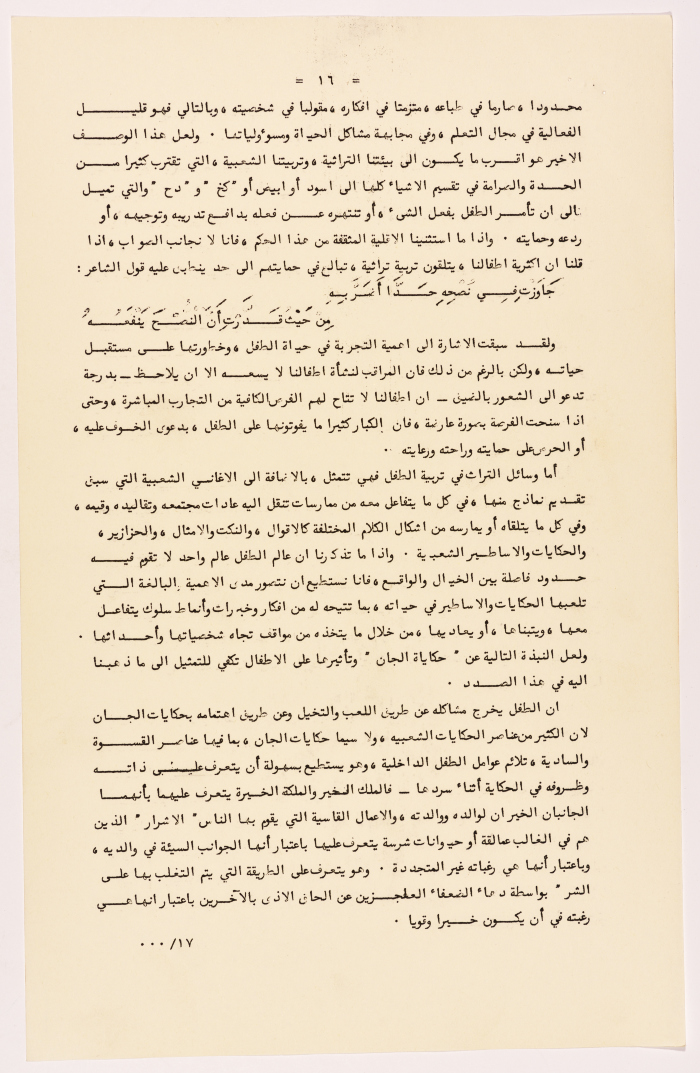 = ١٦ =
محدودا ، صارما في طباعه ، متزمتا في افكاره ، مقولبا في شخصيته ، وبالتالي فهو قليل
الفعالية في مجال التعلم ، وفي مجابهة مشاكل الحياة ومسؤولياتها . ولعل هذا الوصف
الاخير هو اقرب ما يكون الى بيئتنا التراثية ، وتربيتنا الشعبية ، التي تقترب كثيرا من
الحدة والصرامة في تقسيم الاشياء كلها الى اسود أو ابيض أو "كخ" و "دح" والتي تميل
الى ان تأمر الطفل بفعل الشيء ، أو تنتهره عن فعله بدافع تدريبه وتوجيهه ، أو
ردعه وحمايته . واذا ما استثنينا الاقلية المثقفة من هذا الحكم ، فانا لا نجانب الصواب ، اذا
قلنا ان اكثرية اطفالنا ، يتلقون تربية تراثية ، تبالغ في حمايتهم الى حد ينطبق عليه قول الشاعر :
جَاوَزْتِ فِي نُصْحِهِ حَدًّا أَضَرَّ بِهِ
مِنْ حَيْثُ قَدَّرْتِ أَنَّ النُّصْحَ يَنْفَعُهُ
ولقد سبقت الاشارة الى اهمية التجربة في حياة الطفل ، وخطورتها على مستقبل
حياته ، ولكن بالرغم من ذلك فان المراقب لنشأة اطفالنا لا يسعه الا ان يلاحظ – بدرجة
تدعو الى الشعور بالضيق – ان اطفالنا لا تتاح لهم الفرص الكافية من التجارب المباشرة ، وحتى
اذا سنحت الفرصة بصورة عارضة ، فان الكبار كثيرا ما يفوتونها على الطفل ، بدعوى الخوف عليه ،
أو الحرص على حمايته وراحته ورعايته .
أما وسائل التراث في تربية الطفل فهي تتمثل ، بالاضافة الى الاغاني الشعبية التي سبق
تقديم نماذج منها ، في كل ما يتفاعل معه من ممارسات تنقل اليه عادات مجتمعه وتقاليده وقيمه ،
وفي كل ما يتلقاه أو يمارسه من اشكال الكلام المختلفة كالاقوال ، والنكت والامثال ، والحزازير ،
والحكايات والاساطير الشعبية . واذا ما تذكرنا ان عالم الطفل عالم واحد لا تقوم فيه
حدود فاصلة بين الخيال والواقع ، فانا نستطيع ان نتصور مدى الاهمية البالغة التي
تلعبها الحكايات والاساطير في حياته ، بما تتيحه له من افكار وخبرات وأنماط سلوك يتفاعل
معها ، ويتبناها ، أو يعاديها ، من خلال ما يتخذه من مواقف تجاه شخصياتها وأحداثها .
ولعل النبذة التالية عن " حكاياة الجان " وتأثيرها على الاطفال تكفي للتمثيل الى ما ذهبنا
اليه في هذا الصدد .
ان الطفل يخرج مشاكله عن طريق اللعب والتخيل وعن طريق اهتمامه بحكايات الجان
لان الكثير من عناصر الحكايات الشعبيه ، ولا سيما حكايات الجان ، بما فيها عناصر القسوة
والسادية ، تلائم عوامل الطفل الداخلية ، وهو يستطيع بسهولة أن يتعرف على ذاته
وظروفه في الحكاية أثناء سردها – فالملك الخير والملكة الخيرة يتعرف عليهما بأنهما
الجانبان الخيران لوالده ووالدته ، والاعمال القاسية التي يقوم بها الناس " الاشرار " الذين
هم في الغالب عمالقة أو حيوانات شرسة يتعرف عليها باعتبار أنها الجوانب السيئة في والديه ،
وباعتبار أنها هي رغباته غير المتجددة . وهو يتعرف على الطريقة التي يتم التغلب بها على
الشر " بواسطة دهاء الضعفاء العاجزين عن الحاق الاذى بالآخرين باعتبار انها هي
رغبته في أن يكون خيرا وقويا .
٠٠٠ /١٧